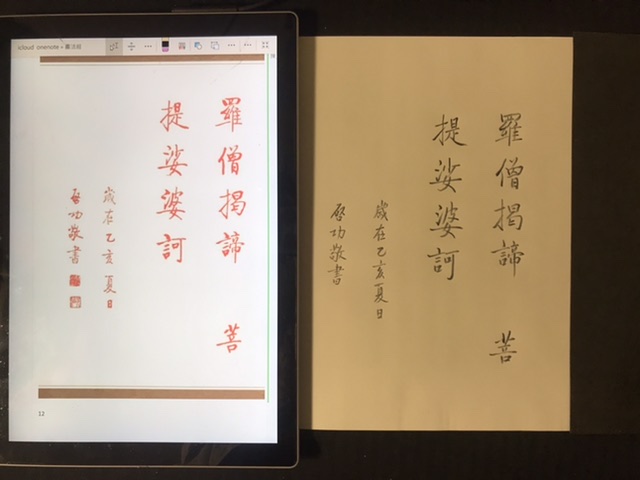 icloud onenote • 書法組
羅僧揭諦 菩
提娑婆訶
歲在乙亥夏日
啓功敬書
12
羅僧揭諦 菩
提娑婆訶
歲在乙亥夏日
啓功敬書